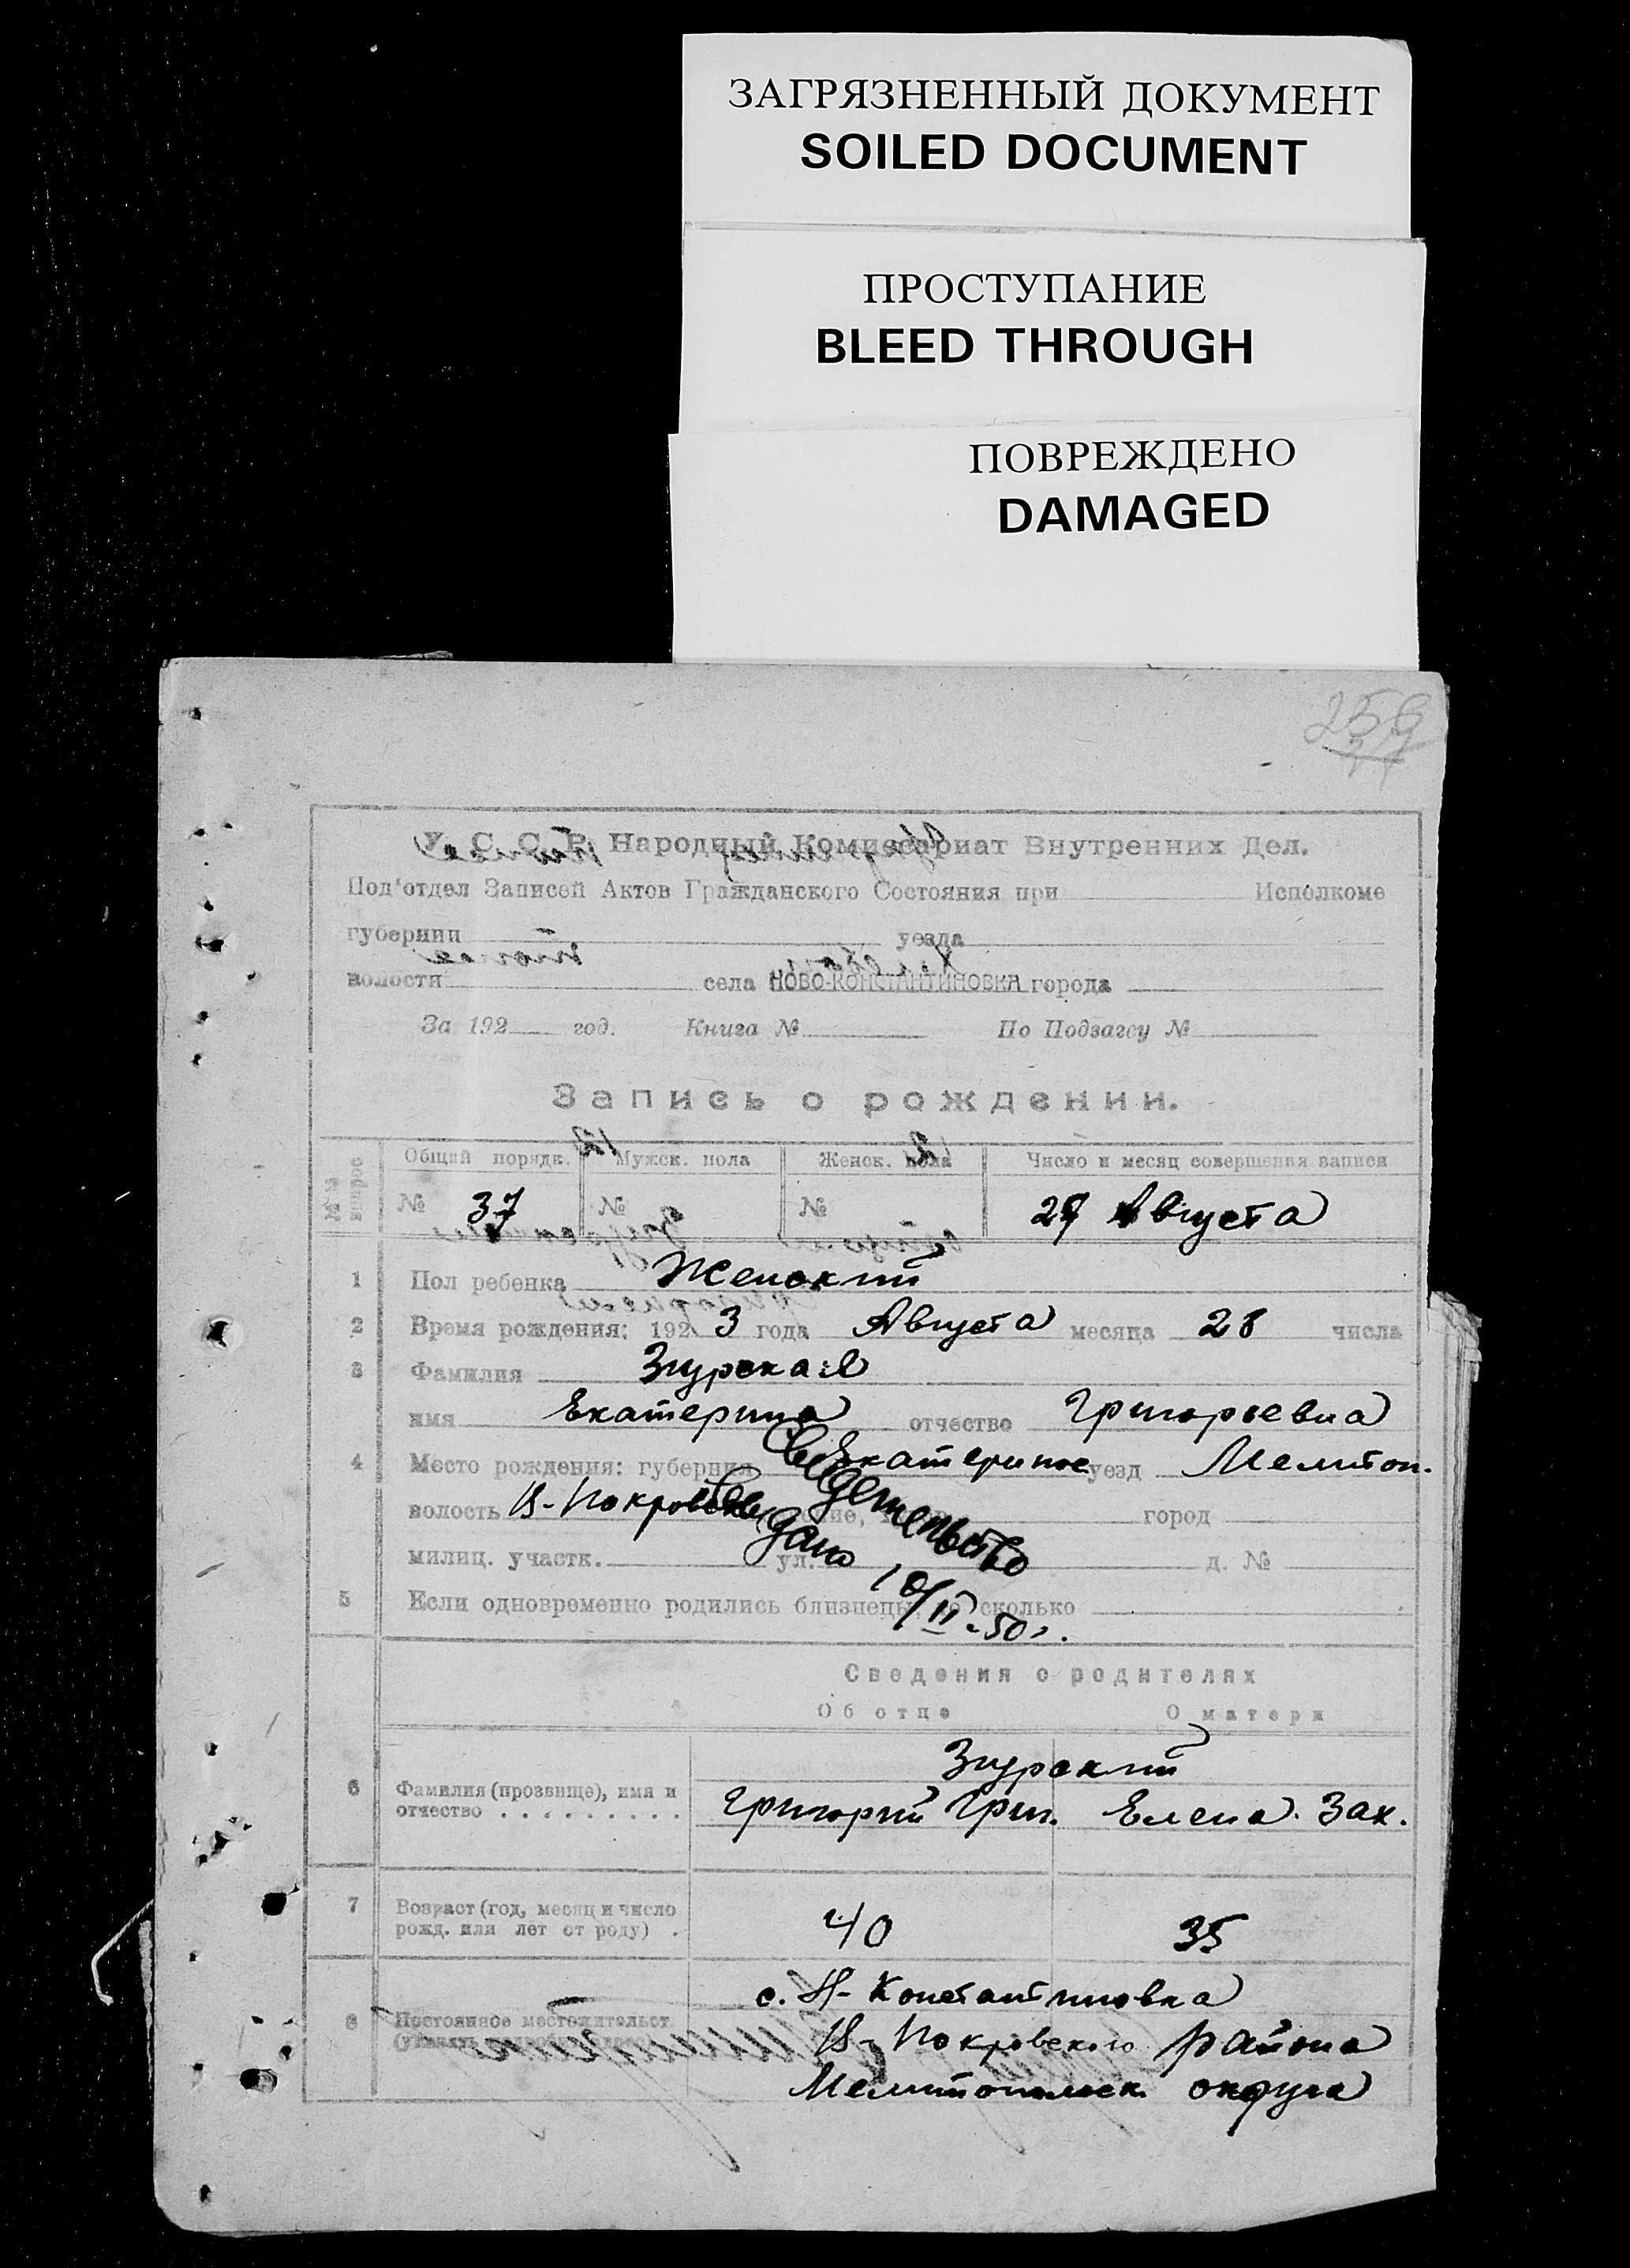 ЗАГРЯЗНЕННЫЙ ДОКУМЕНТ
SOILED DOCUMENT
ПРОСТУПАНИЕ
BLEED THROUGH
ПОВРЕЖДЕНО
DAMAGED
У. С. С. Р. Народный Комиссариат Внутренних Дел.
Под'отдел Записей Актов Гражданского Состояния при Исполкоме
губернии уезда
волости села НОВО-КОНСТАНТИНОВКА города
За 192 год. Книга № По Подзагсу №
Запись о рождении.
Общий порядк. Мужск. пола Женск. пола Число и месяц совершения записи
№ 37 № № Августа
1 Пол ребенка Женский
2 Время рождения: 192 3 года Августа месяца 28 числа
3 Фамилия Згурская
имя Екатерина отчество Григорьевна
4 Место рождения: губерния Екатеринос. уезд Мелитоп.
волость Н-Покровское город
милиц. участк. ул. д. №
Свидетельство
дано
10/II-50г.
5 Если одновременно родились близнецы, то сколько
Сведения о родителях
Об отце О матери
Згурский
6 Фамилия (прозвище), имя и
отчество . . . . . . . . . Григорий Григ. Елена Зах.
7 Возраст (год, месяц и число
рожд. или лет от роду) . 40 35
с. Н-Константиновка
8 Постоянное местожительст.
Н-Покровского района
Мелитопольск. округа